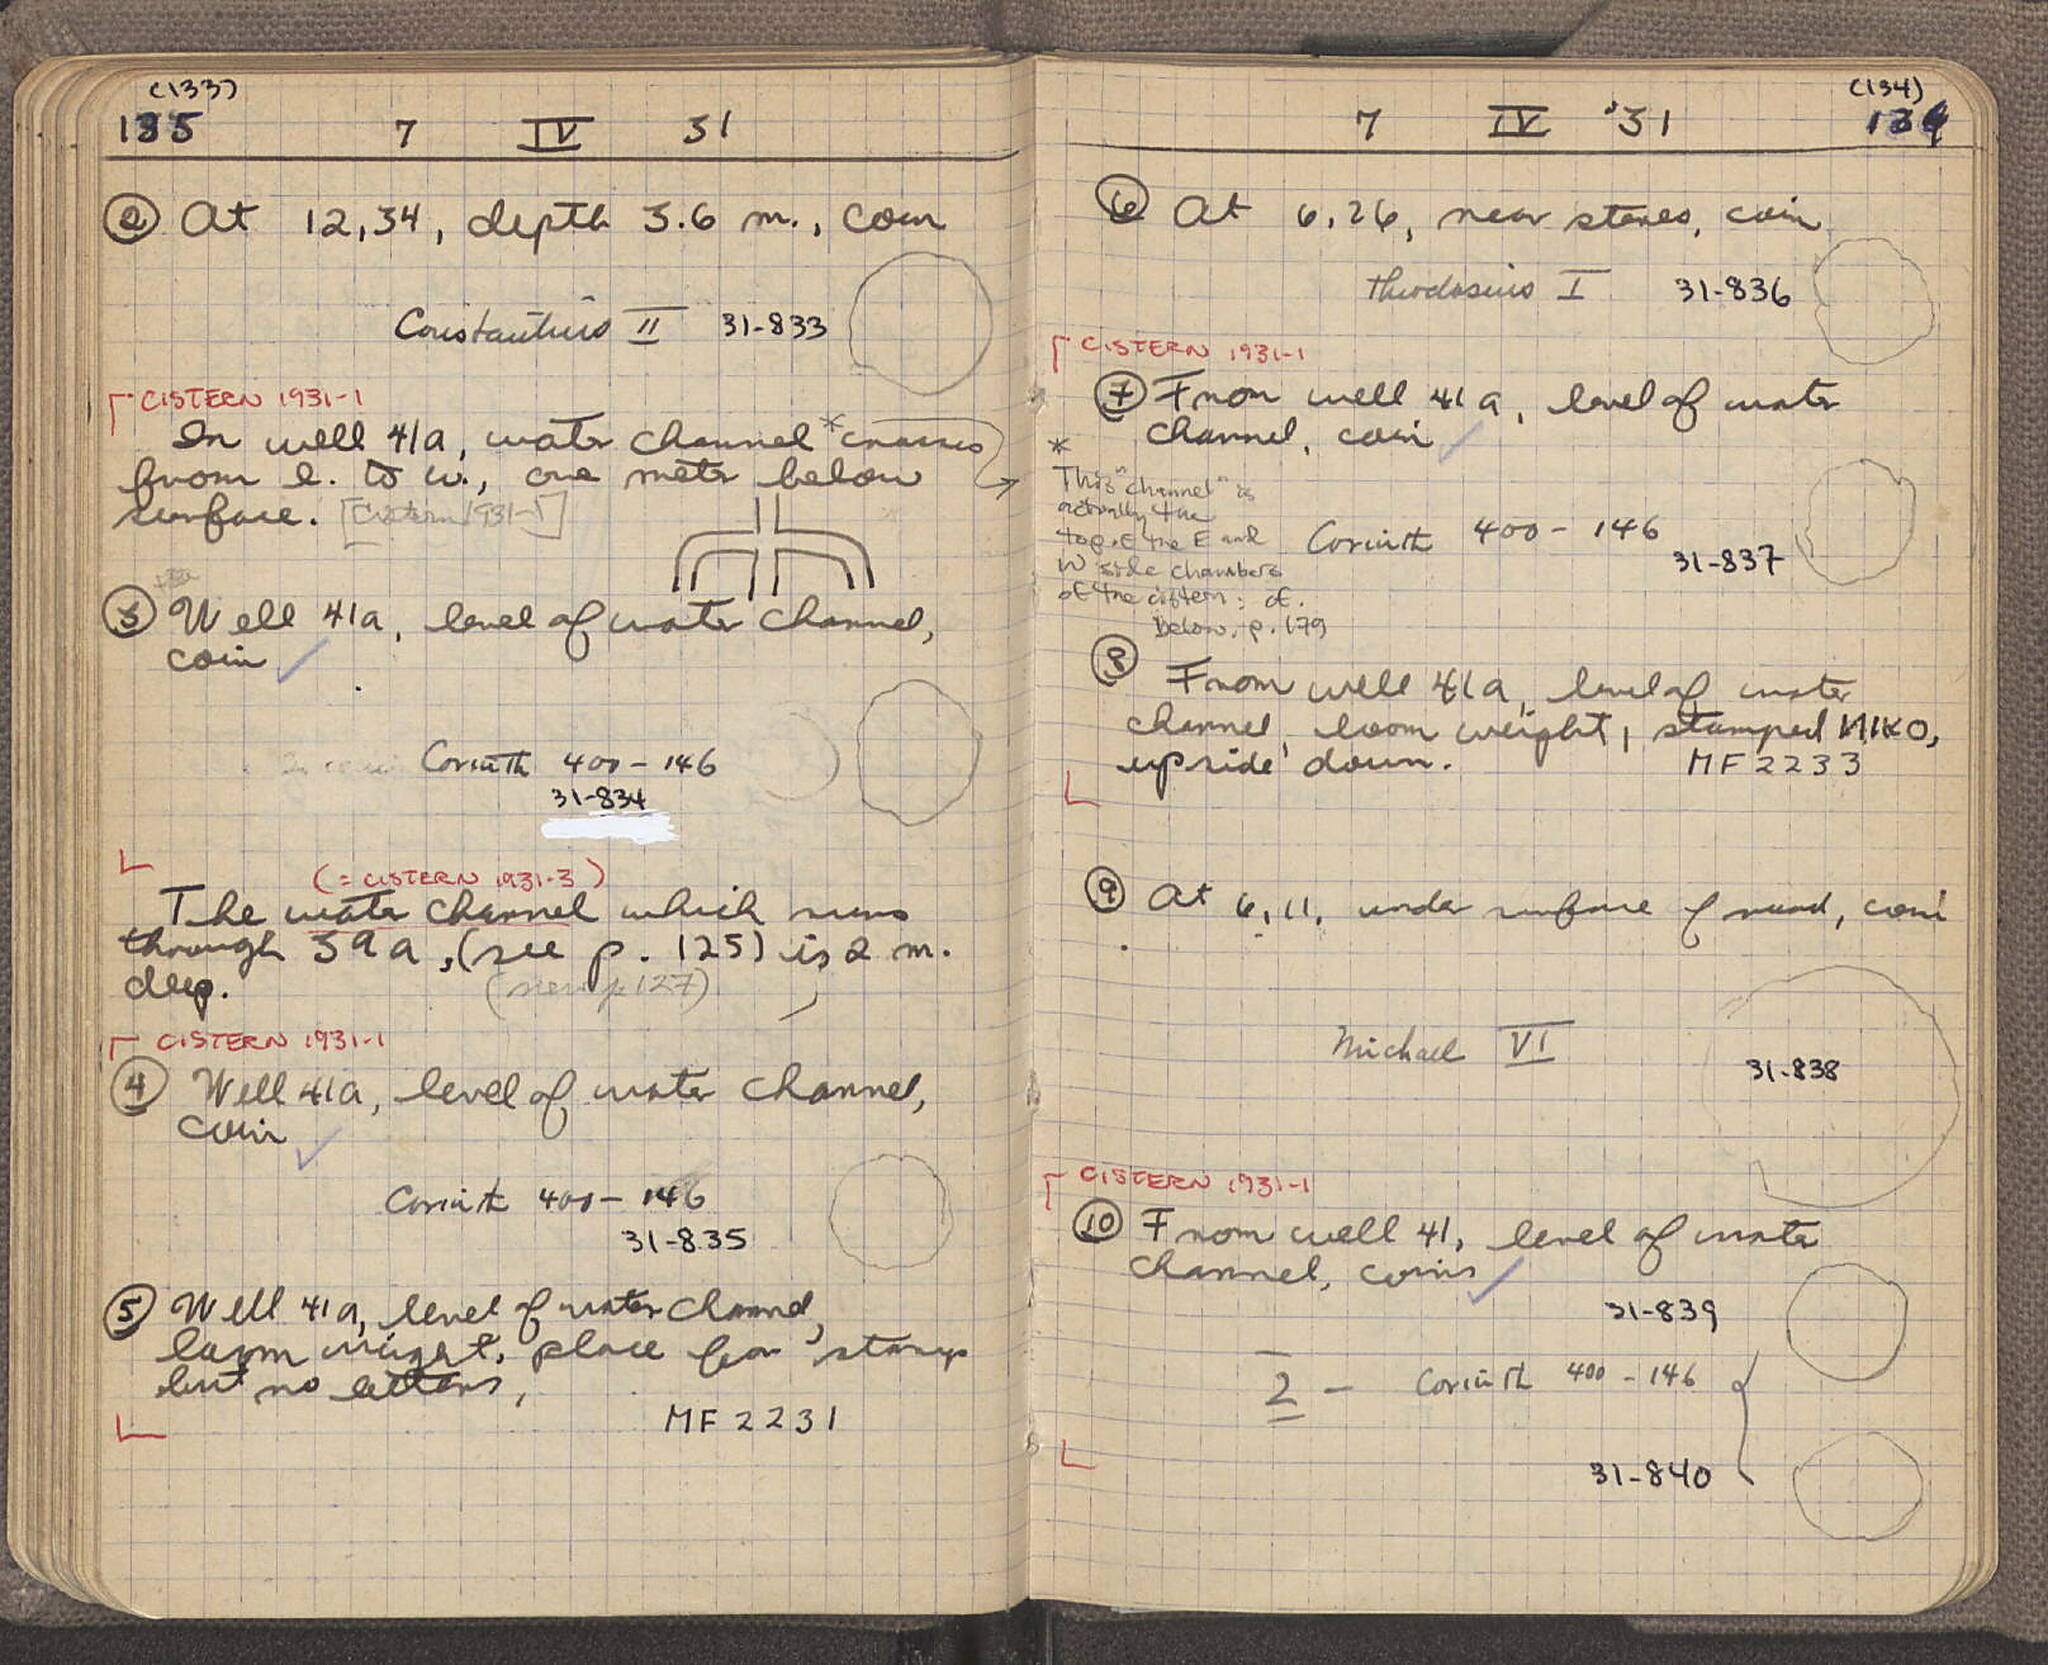 (133)
135 7 IV 31
② At 12,34, depth 3.6 m., coin
Constantius II 31-833
CISTERN 1931-1
In well 41a, water channel * crosses
from e. to w., one meter below
surface. [Cistern 1931-1]
③ Well 41a, level of water channel,
coin ✓
Corinth 400-146
31-834
(= CISTERN 1931-3)
The water channel which runs
through 39a, (see p. 125) is 2 m.
deep.
④ CISTERN 1931-1
Well 41a, level of water channel,
coin ✓
Corinth 400-146
31-835
⑤ Well 41a, level of water channel,
loom weight, place for stamp
but no letters,
MF 2231
(134)
7 IV '31 134
⑥ At 6,26, near stones, coin
Theodosius I 31-836
CISTERN 1931-1
⑦ From well 41a, level of water
channel, coin ✓
*
This "channel" is
actually the
top of the E and
W side chambers
of the cistern: cf.
below, p. 179
Corinth 400-146
31-837
⑧ From well 41a, level of water
channel, loom weight, stamped NIKO,
upside down. MF 2233
⑨ At 6,11, under surface of road, coin
Michael VI 31-838
CISTERN 1931-1
⑩ From well 41, level of water
channel, coins ✓
31-839
2 - Corinth 400-146
31-840